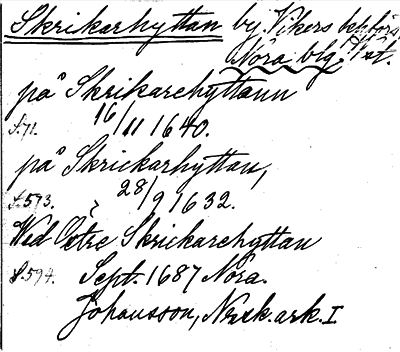 Skrikarhyttan by, Vikers kapförs.
Nora blg. Väst.
på Skrikarehyttann
s. 71. 16/11 1640.
på Skrickarhyttan,
s. 593. 28/9 1632.
Wed Östre Skrickarehyttan
s. 594. Sept. 1687 Nora.
Johansson, Norsk. ark. I